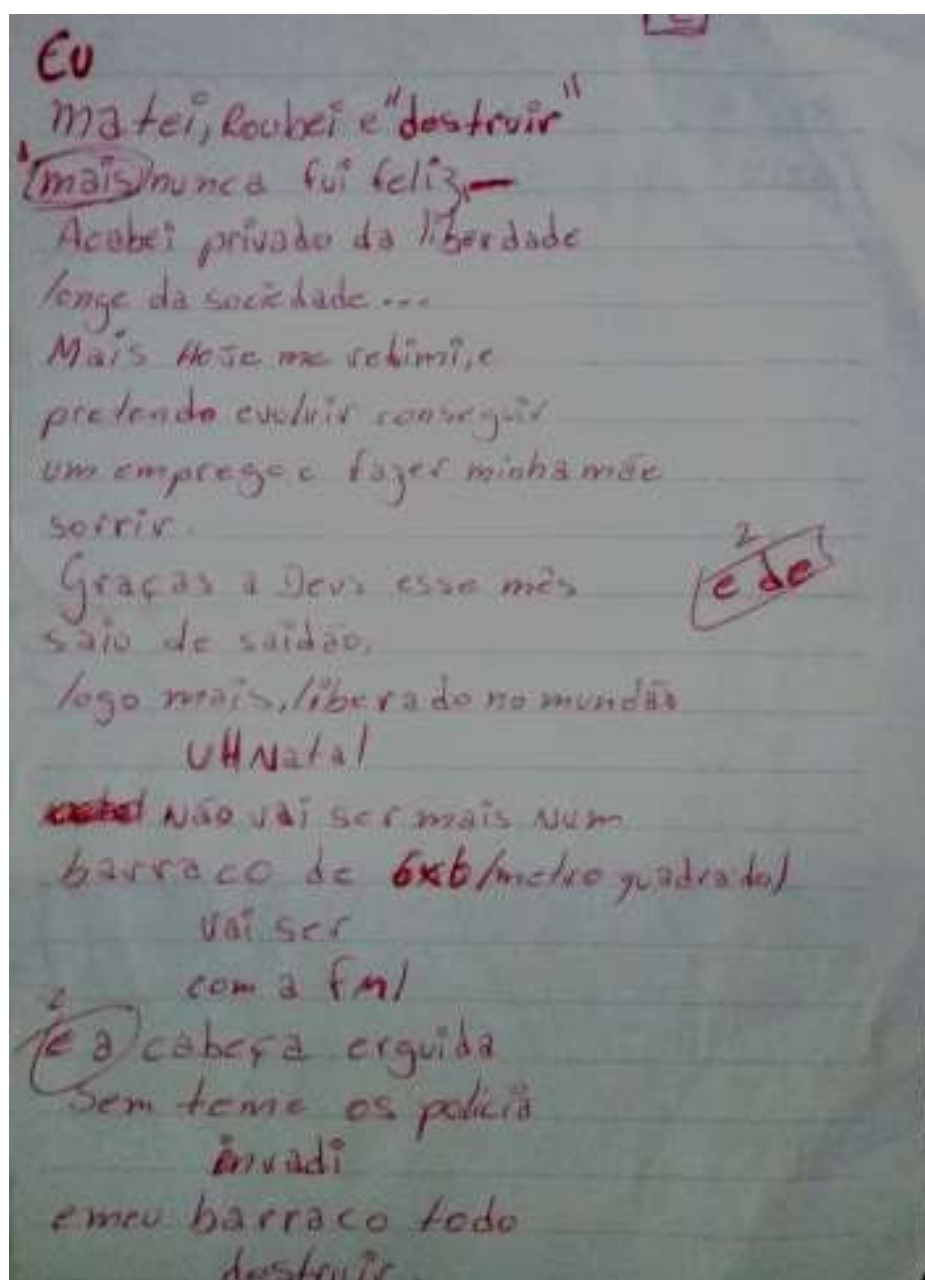 EU
matei, Roubei e "destruir"
mais nunca fui feliz,—
Acabei privado da liberdade
longe da sociedade...
Mais HoJe me redimi, e
pretendo evoluir conseguir
um emprego e fazer minha mãe
sorrir.
Graças a Deus esse mês
2
e de
saio de saidão,
logo mais, liberado no mundão
UH Natal
Não vai ser mais Num
barraco de 6x6/metro quadrado/
vai ser
com a fml
2
e a cabeça erguida
Sem teme os policia
invadi
e meu barraco todo
destruir.